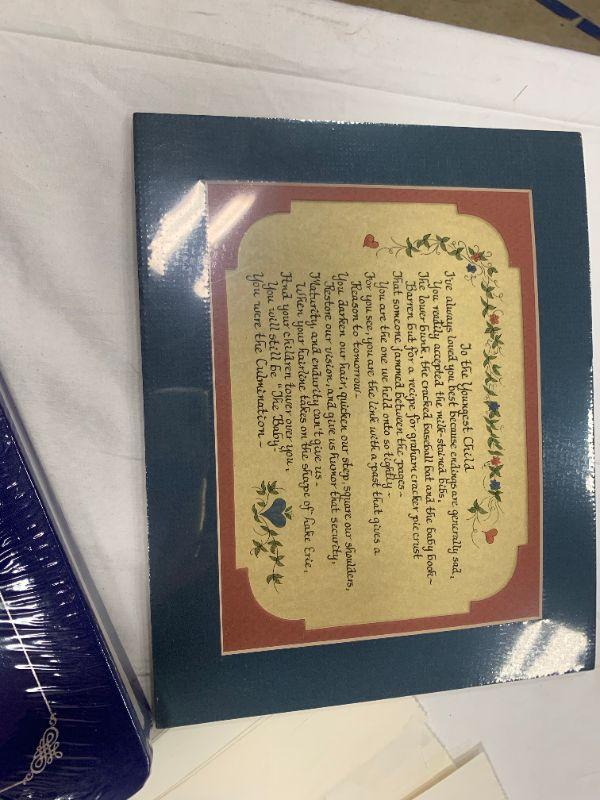 To the Youngest Child
I've always loved you best because endings are generally sad,
You readily accepted the milk-stained bibs,
The lower bunk, the cracked baseball bat and the baby book-
Barren but for a recipe for graham cracker pie crust
That someone jammed between the pages-
You are the one we held onto so tightly-
For you see, you are the link with a past that gives a
Reason to tomorrow-
You darken our hair, quicken our step, square our shoulders,
Restore our vision, and give us humor that security,
Maturity and endurity can't give us-
When your hairline takes on the shape of Lake Erie,
And your children tower over you,
You will still be "The Baby"
You were the Culmination-